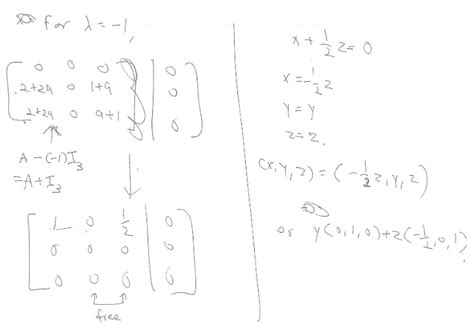 for λ = -1,
0 0 0 | 0
2+2a 0 1+a | 0
2+2a 0 a+1 | 0
A - (-1)I₃
= A + I₃
1 0 1/2 | 0
0 0 0 | 0
0 0 0 | 0
free
x + 1/2 z = 0
x = -1/2 z
y = y
z = z.
(x, y, z) = (-1/2 z, y, z)
or y(0, 1, 0) + z(-1/2, 0, 1)